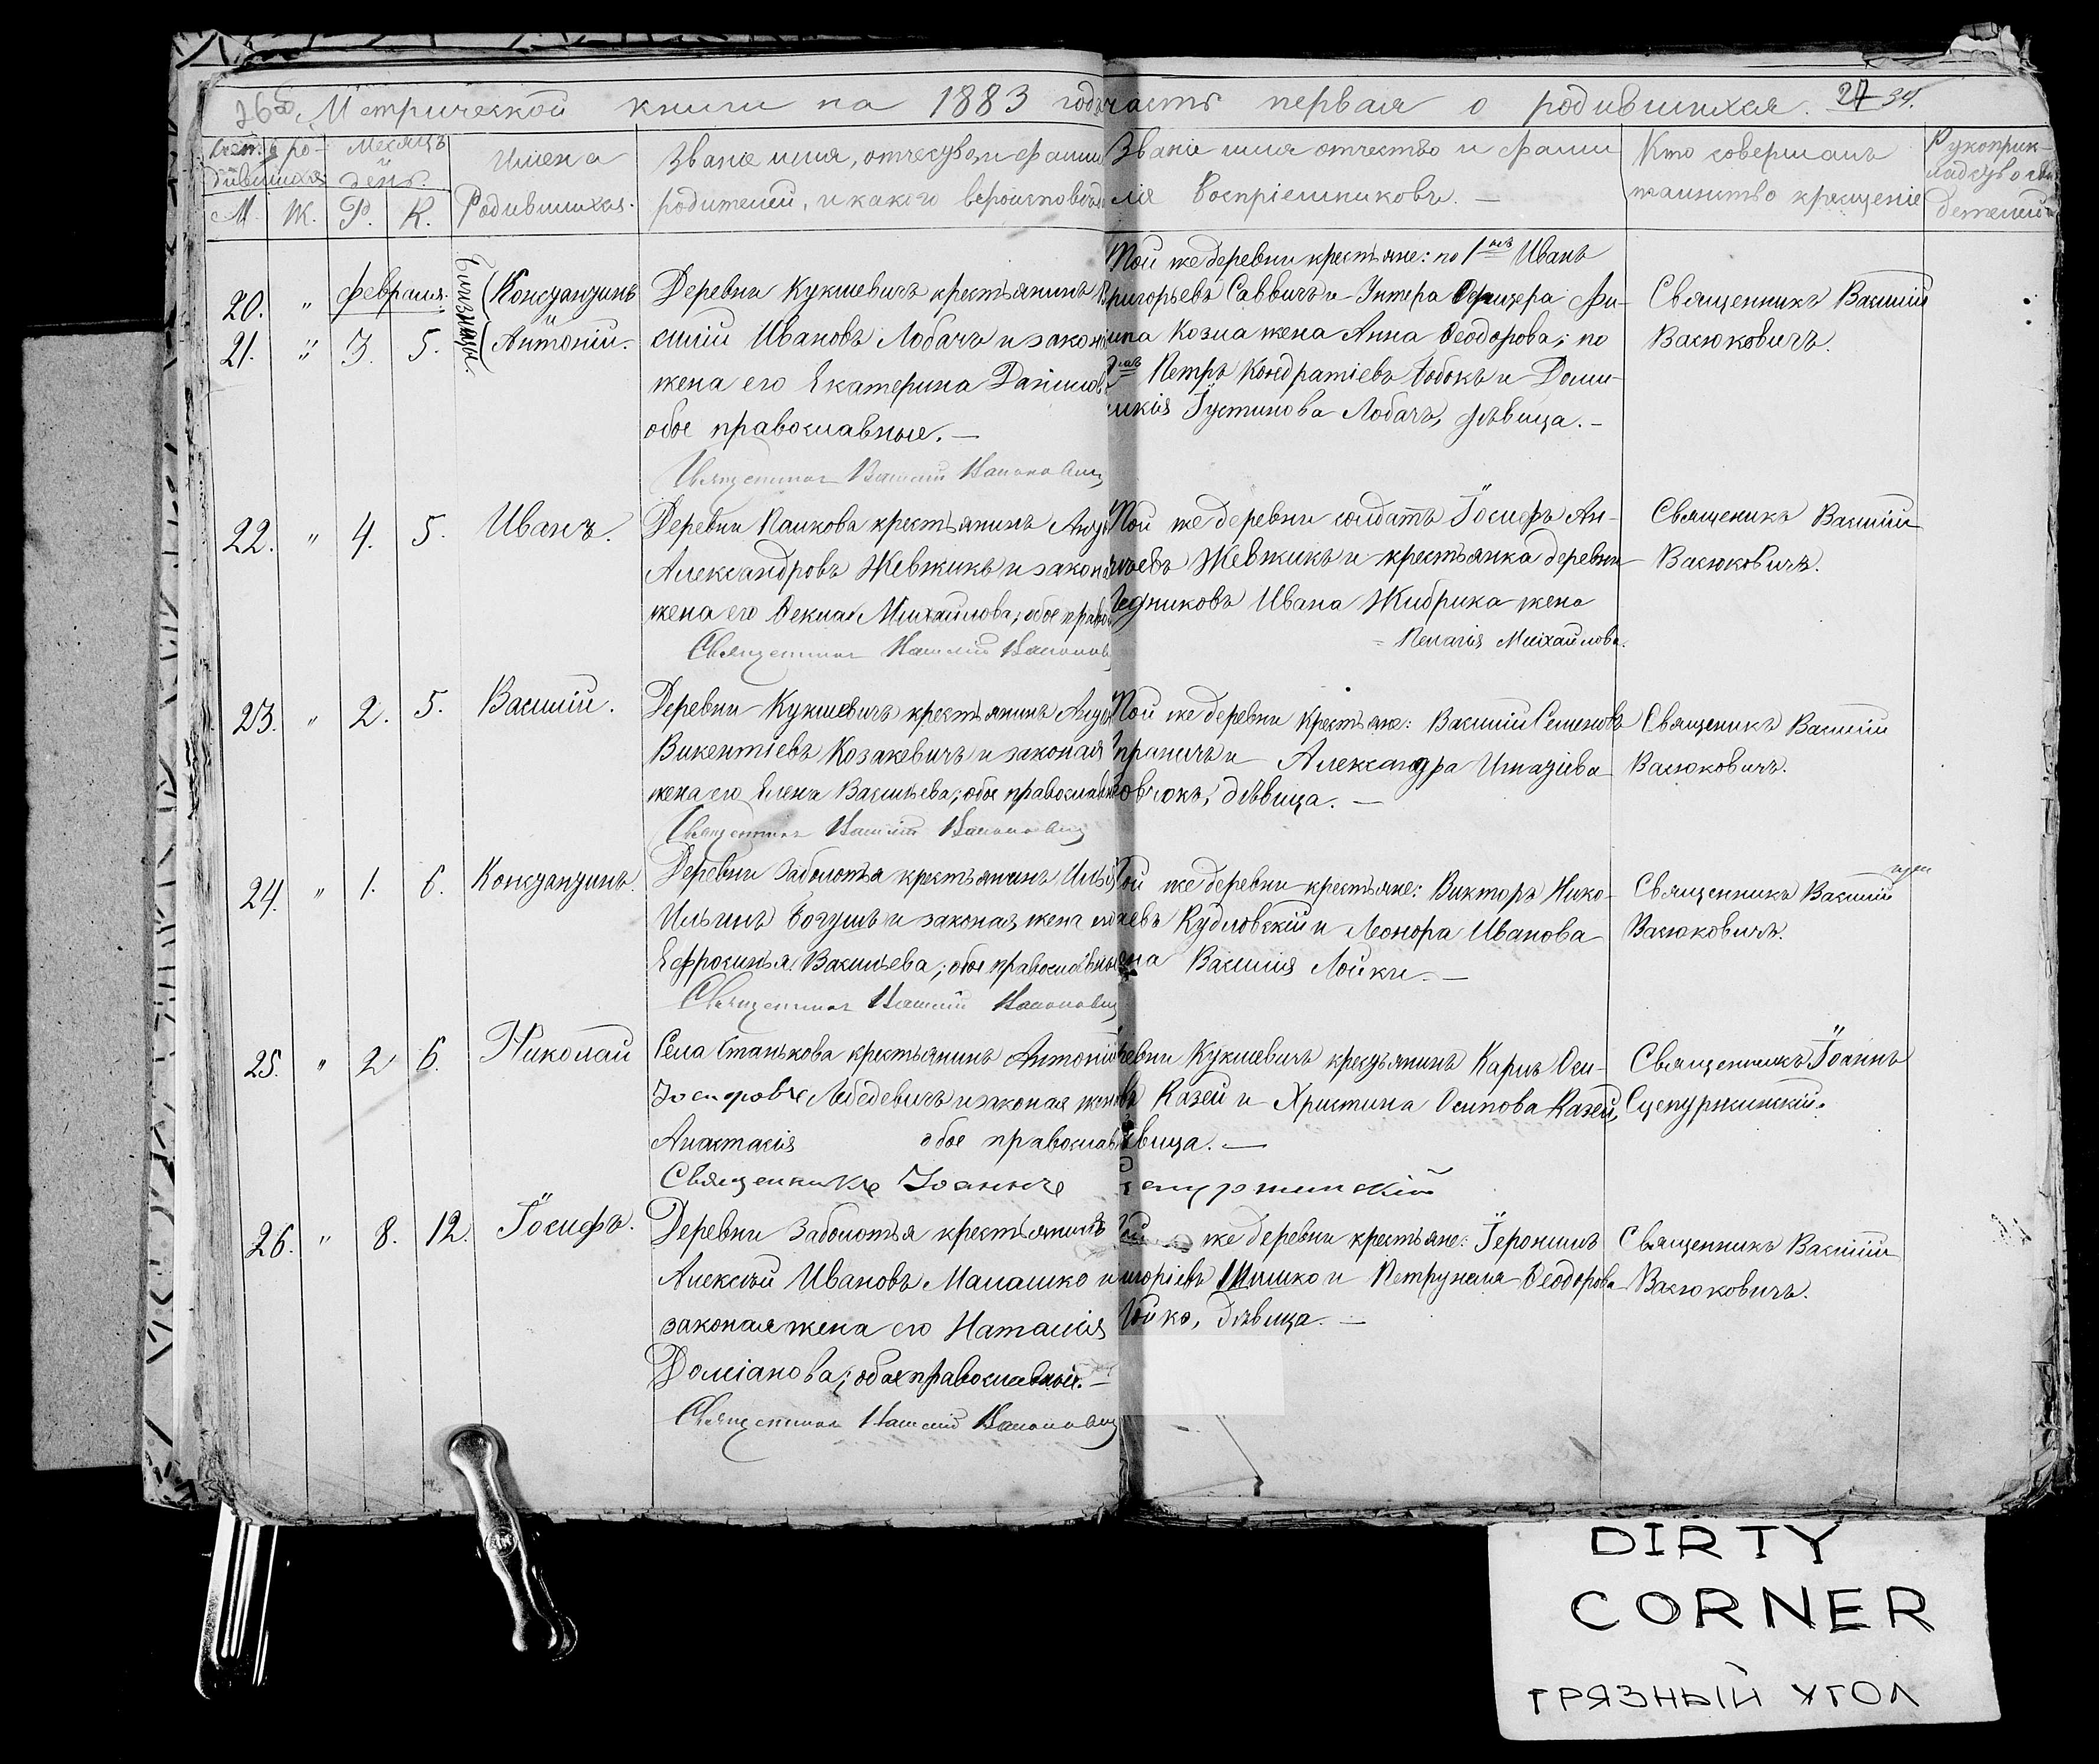 Метрической книги на 1883 годъ часть первая о родившихся. 27 34.
Счетъ ро-
дившихся
Месяцъ
и
день.
М. Ж. Р. К.
Имена
Родившихся.
Званіе имя, отчество, и фами
родителей, и какого вероисповед
Званіе имя отчество и фами
лія Воспріемниковъ. —
Кто совершалъ
таинство крещеніе
Рукоприк-
ладство сви
детелей
20. " февраля.
21. " 3. 5.
близнецы
Констандинъ
и
Антоній.
Деревни Кукшевичъ крестьянинъ Ва
силій Ивановъ Лобачъ и закон
жена его Екатерина Данилов
обое православные. —
Священник Василий
Той же деревни крестьяне: по 1 Иванъ
Григорьевъ Саввичъ и Унтера Офицера Фи-
липа Козла жена Анна Ѳеодорова; по
Петръ Кондратіевъ Бобокъ и Доми-
никія Іустинова Лобачъ, дѣвица. —
Священникъ Василій
Васюковичъ.
22. " 4. 5. Иванъ.
Деревни Панкова крестьянинъ Анд
Александровъ Жевжикъ и закон
жена его Ѳекла Михайлова; обое право
Священник Василий
Той же деревни солдатъ Іосифъ Ан-
Жевжикъ и крестьянка деревни
Ивана Жибрика жена
- Пелагія Михайлова.
Священикъ Василій
Васюковичъ.
23. " 2. 5. Василій.
Деревни Кукшевичъ крестьянинъ Анд
Викентіевъ Козакевичъ и законая
жена его Елена Васильева; обое православн
Священник Василий
Той же деревни Крестьяне: Василій Семеновъ
и Александра Игнатіева
дѣвица. —
Священикъ Василій
Васюковичъ.
24. " 1. 6. Констандинъ.
Деревни Заболотья крестьянинъ Илья
Ильинъ Богушъ и законая жена его
Ефросинья Васильева; обое православные
Священник Василий
Той же деревни крестьяне: Викторъ Нико-
лаевъ Кудловскій и Леонора Иванова
жена Василія Лойки. —
Священникъ Василій
Васюковичъ.
25. " 2 6. Николай
Села Станькова крестьянинъ Антоній
Іосифовъ Лебедевичъ и законая жена
Анастасія обое православ
Священникъ Іоаннъ Сцепуржинскій
Деревни Кукшевичъ крестьянинъ Карлъ Оси-
повъ Казей и Христина Осипова Казей,
дѣвица. —
Священникъ Іоаннъ
Сцепуржинскій.
26. " 8. 12. Іосифъ.
Деревни Заболотья крестьянинъ
Алексѣй Ивановъ Малашко и
законая жена его Наталія
Доміанова; обое православные. —
Священник Василий
Той же деревни крестьяне: Іеронимъ
и Петрунеля Ѳеодорова
Лойко, дѣвица. —
Священникъ Василій
Васюковичъ.
DIRTY
CORNER
ГРЯЗНЫЙ УГОЛ